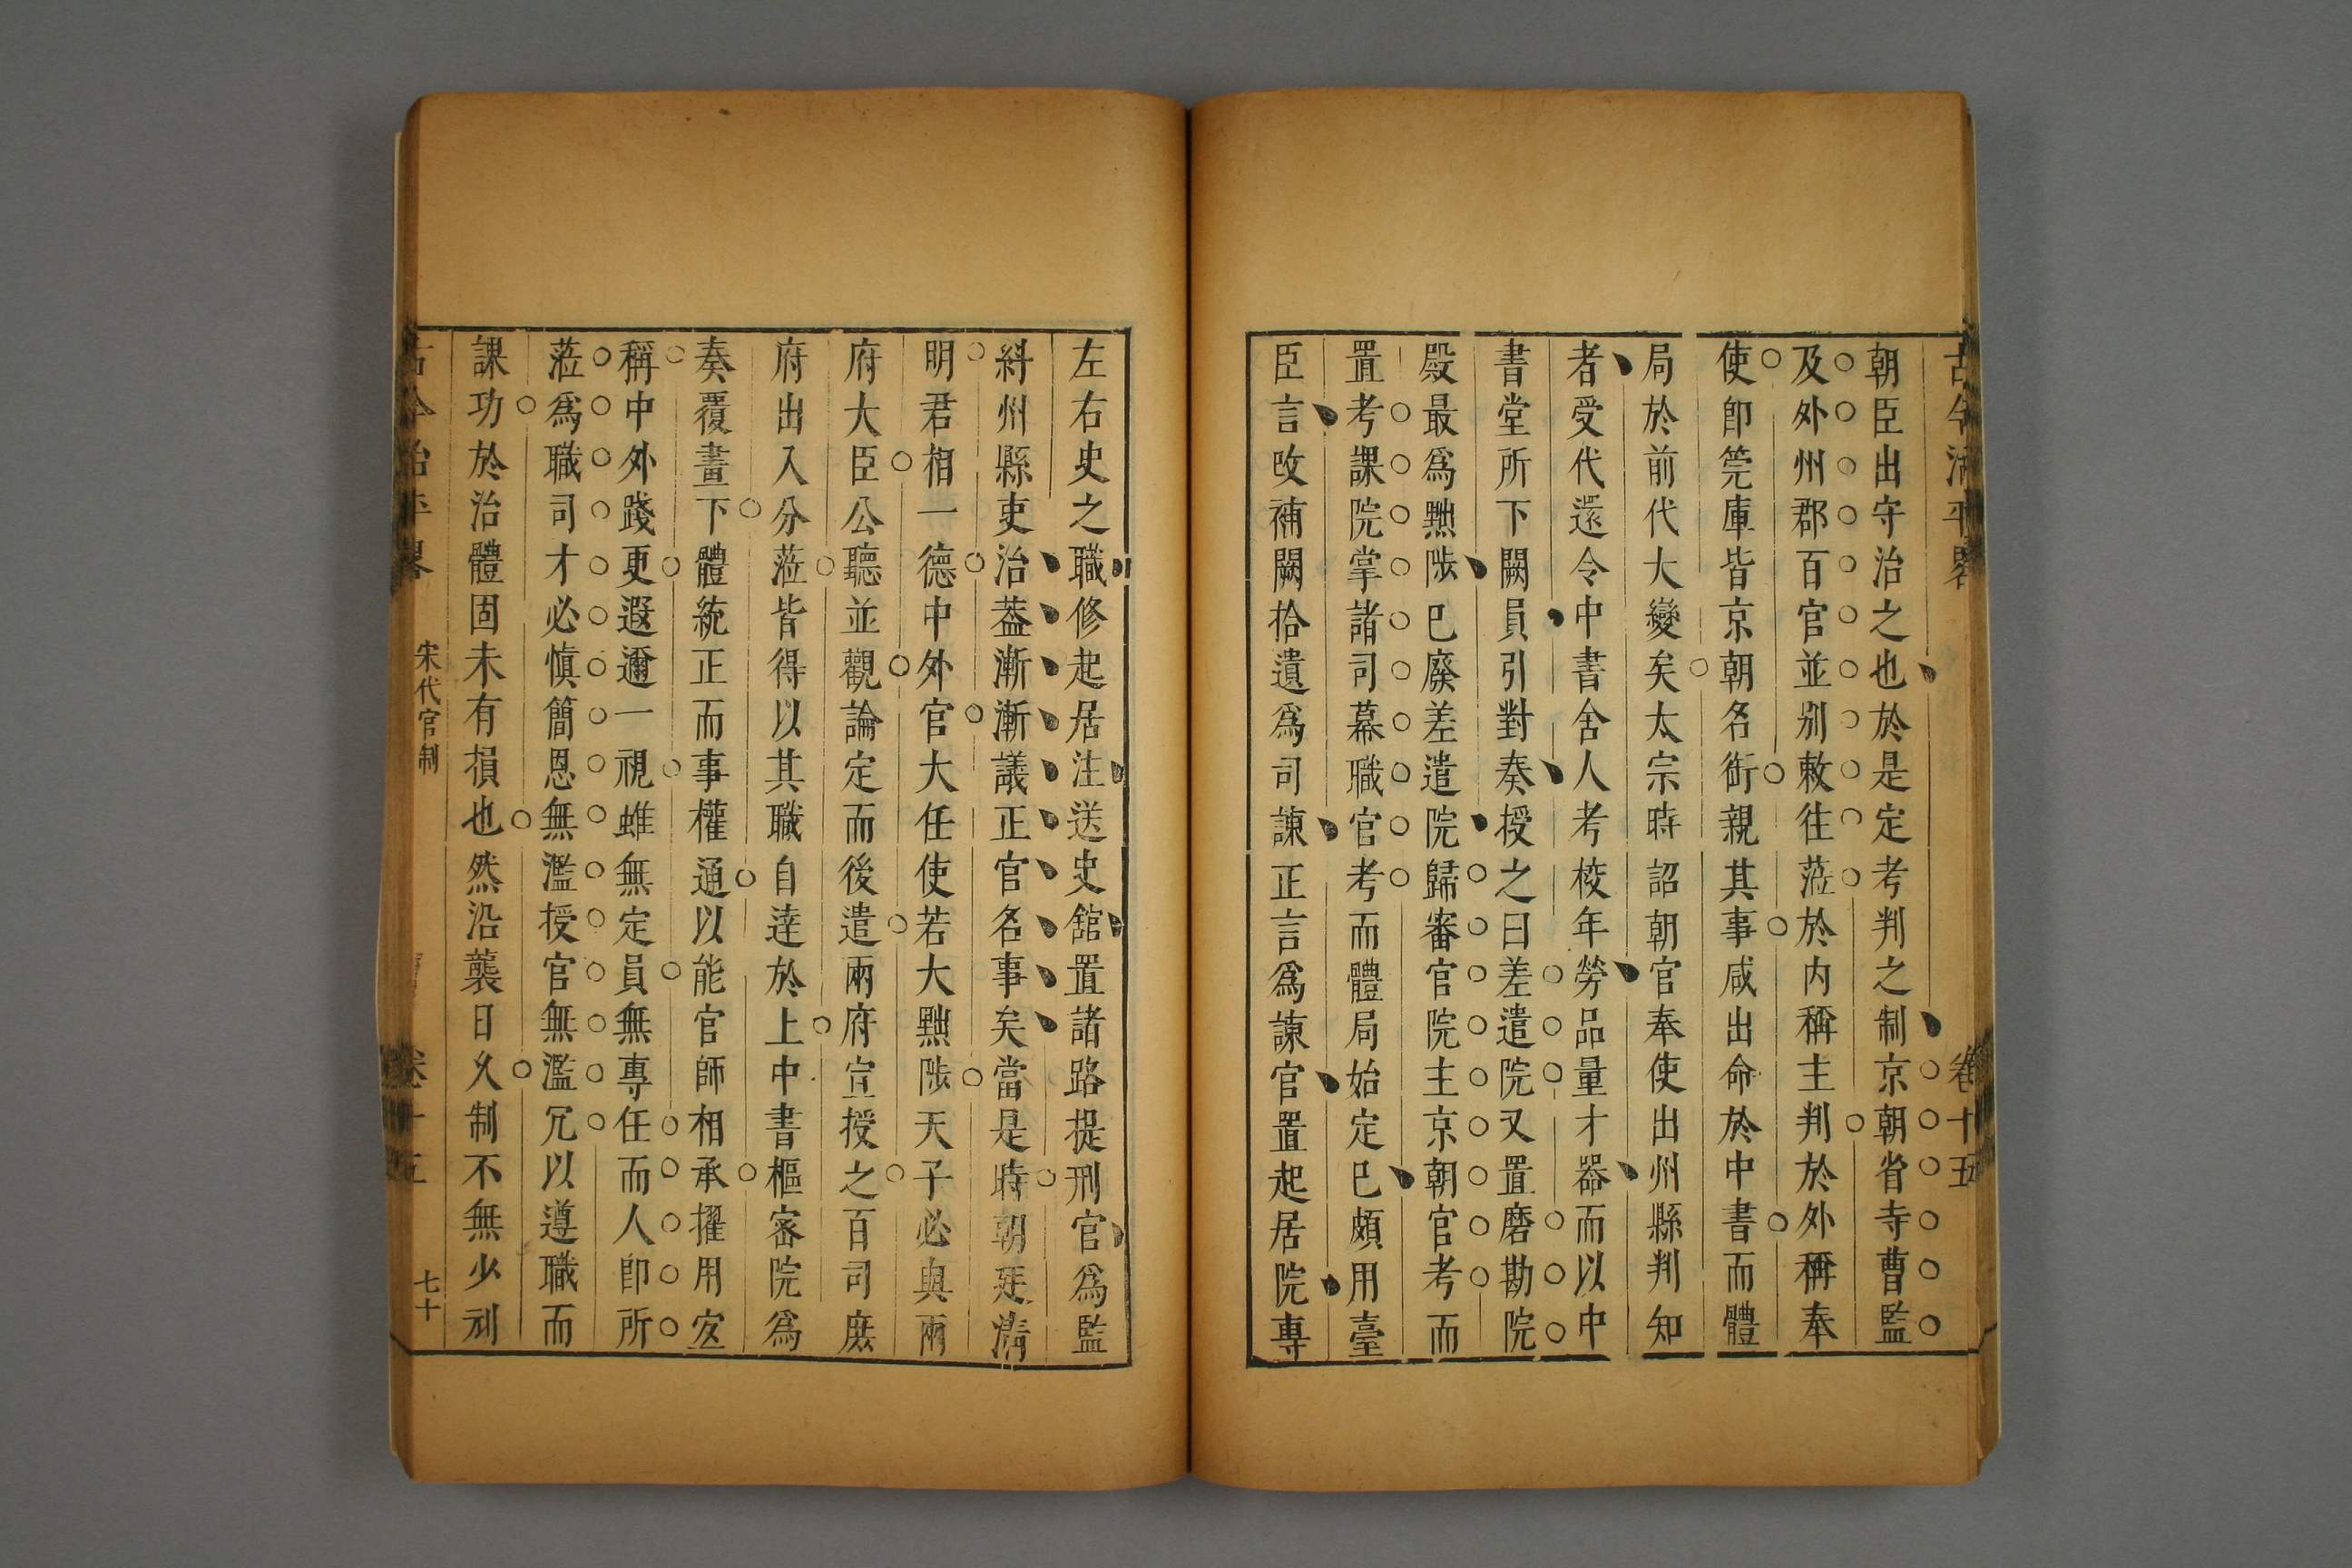 古今治平畧 卷十五
朝臣出守治之也於是定考判之制京朝省寺曹監
及外州郡百官並别敕往蒞於内稱主判於外稱奉
使卽筦庫皆京朝名銜親其事咸出命於中書而體
局於前代大變矣太宗時詔朝官奉使出州縣判知
者受代還令中書舍人考校年勞品量才器而以中
書堂所下闕員引對奏授之曰差遣院又置磨勘院
殿最爲黜陟已廢差遣院歸審官院主京朝官考而
置考課院掌諸司幕職官考而體局始定已頗用臺
臣言改補闕拾遺爲司諫正言爲諫官置起居院專
左右史之職修起居注送史舘置諸路提刑官爲監
糾州縣吏治葢漸漸議正官名事矣當是時朝廷清
明君相一德中外官大任使若大黜陟天子必與兩
府大臣公聽並觀論定而後遣兩府宣授之百司庶
府出入分蒞皆得以其職自達於上中書樞宻院爲
奏覆畫下體統正而事權通以能官師相承擢用宏
稱中外踐更遐邇一視雖無定員無專任而人卽所
蒞爲職司才必愼簡恩無濫授官無濫冗以遵職而
課功於治體固未有損也然沿襲日久制不無少利
古今治平畧 宋代官制 卷十五 七十